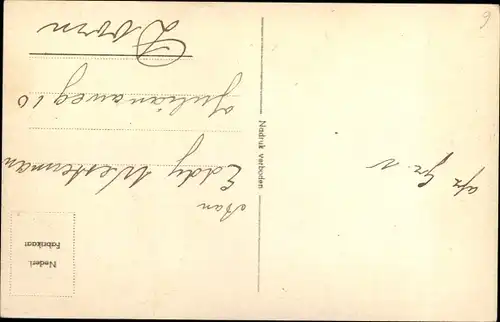 Aan
Eddy Westerman
Julianaweg 10
Doorn
Nadruk verboden
Nederl.
Fabrikaat
6